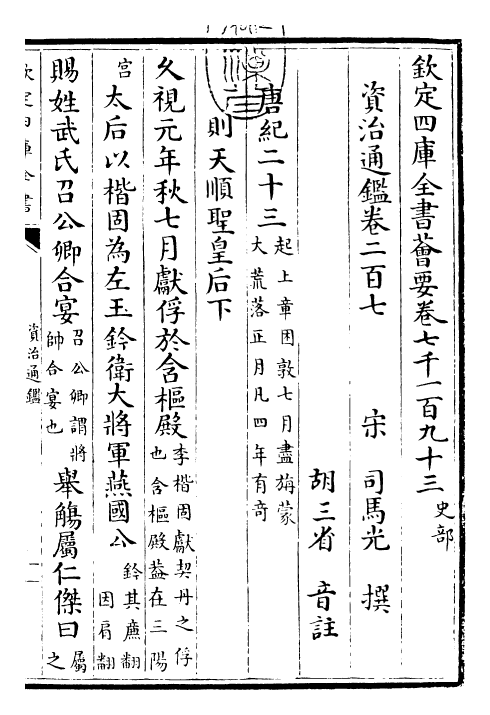 欽定四庫全書薈要卷七千一百九十三 史部
資治通鑑卷二百七
宋 司馬光 撰
胡三省 音註
唐紀二十三 起上章困敦七月盡旃蒙
大荒落正月凡四年有奇
則天順聖皇后下
久視元年秋七月獻俘於含樞殿 李楷固獻契丹之俘
也含樞殿葢在三陽
宮 太后以楷固為左玉鈐衛大將軍燕國公 鈐其廉翻
因肩翻
賜姓武氏召公卿合宴 召公卿謂將
帥合宴也 舉觴屬仁傑曰 屬
之
欽定四庫全書
資治通鑑
一